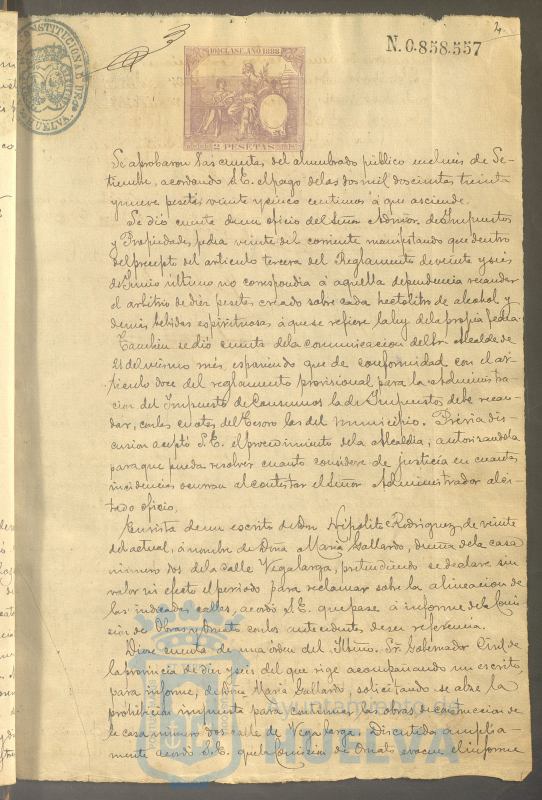 CONSTITUCIONAL DE
HUELVA.
10ª CLASE. AÑO 1888
2 PESETAS
N. 0.858.557
Se aprobaron las cuentas del alumbrado público en el mes de Se-
tiembre, acordando S.E. el pago de las dos mil doscientas treinta
y nueve pesetas veinte y cinco centimos á que asciende.
Se dió cuenta de un oficio del Señor Admor. de Impuestos
y Propiedades fecha veinte del corriente manifestando que dentro
del precepto del articulo tercero del Reglamento de veinte y seis
de Junio ultimo no correspondia á aquella dependencia recaudar
el arbitrio de diez pesetas creado sobre cada hectolitro de alcohol y
demás bebidas espirituosas á que se refiere la ley de la propia fecha.
Tambien se dió cuenta de la comunicacion del Sr. Alcalde de
21 del mismo mes, exponiendo que de conformidad con el ar-
ticulo doce del reglamento provisional para la Administra-
cion del Impuesto de Consumos la de Impuestos debe recau-
dar, con las cuotas del Tesoro las del municipio. Prévia dis-
cusion aceptó S.E. el procedimiento de la Alcaldia, autorizandola
para que pueda resolver cuanto considere de justicia en cuantas
incidencias ocurran al contestar el Señor Administrador al ci-
tado oficio.
En vista de un escrito de Don Hipolito Rodriguez, de veinte
del actual, á nombre de Doña Maria Gallardo, dueña de la casa
número dos de la calle Vegalarga, pretendiendo se declare sin
valor ni efecto el periodo para reclamar sobre la alineacion de
las indicadas calles, acordó S.E. que pase á informe de la Comi-
sion de Obras y Ornato con los antecedentes de su referencia.
Dióse cuenta de una orden del Iltmo. Sr. Gobernador Civil de
la provincia de diez y seis del que rige acompañando un escrito,
para informe, de Doña Maria Gallardo, solicitando se alze la
prohibicion impuesta para continuar las obras de construccion de
la casa número dos calle de Vegalarga. Discutido amplia-
mente acordó S.E. que la Comision de Ornato evacue el informe
Ayuntamiento de
HUELVA